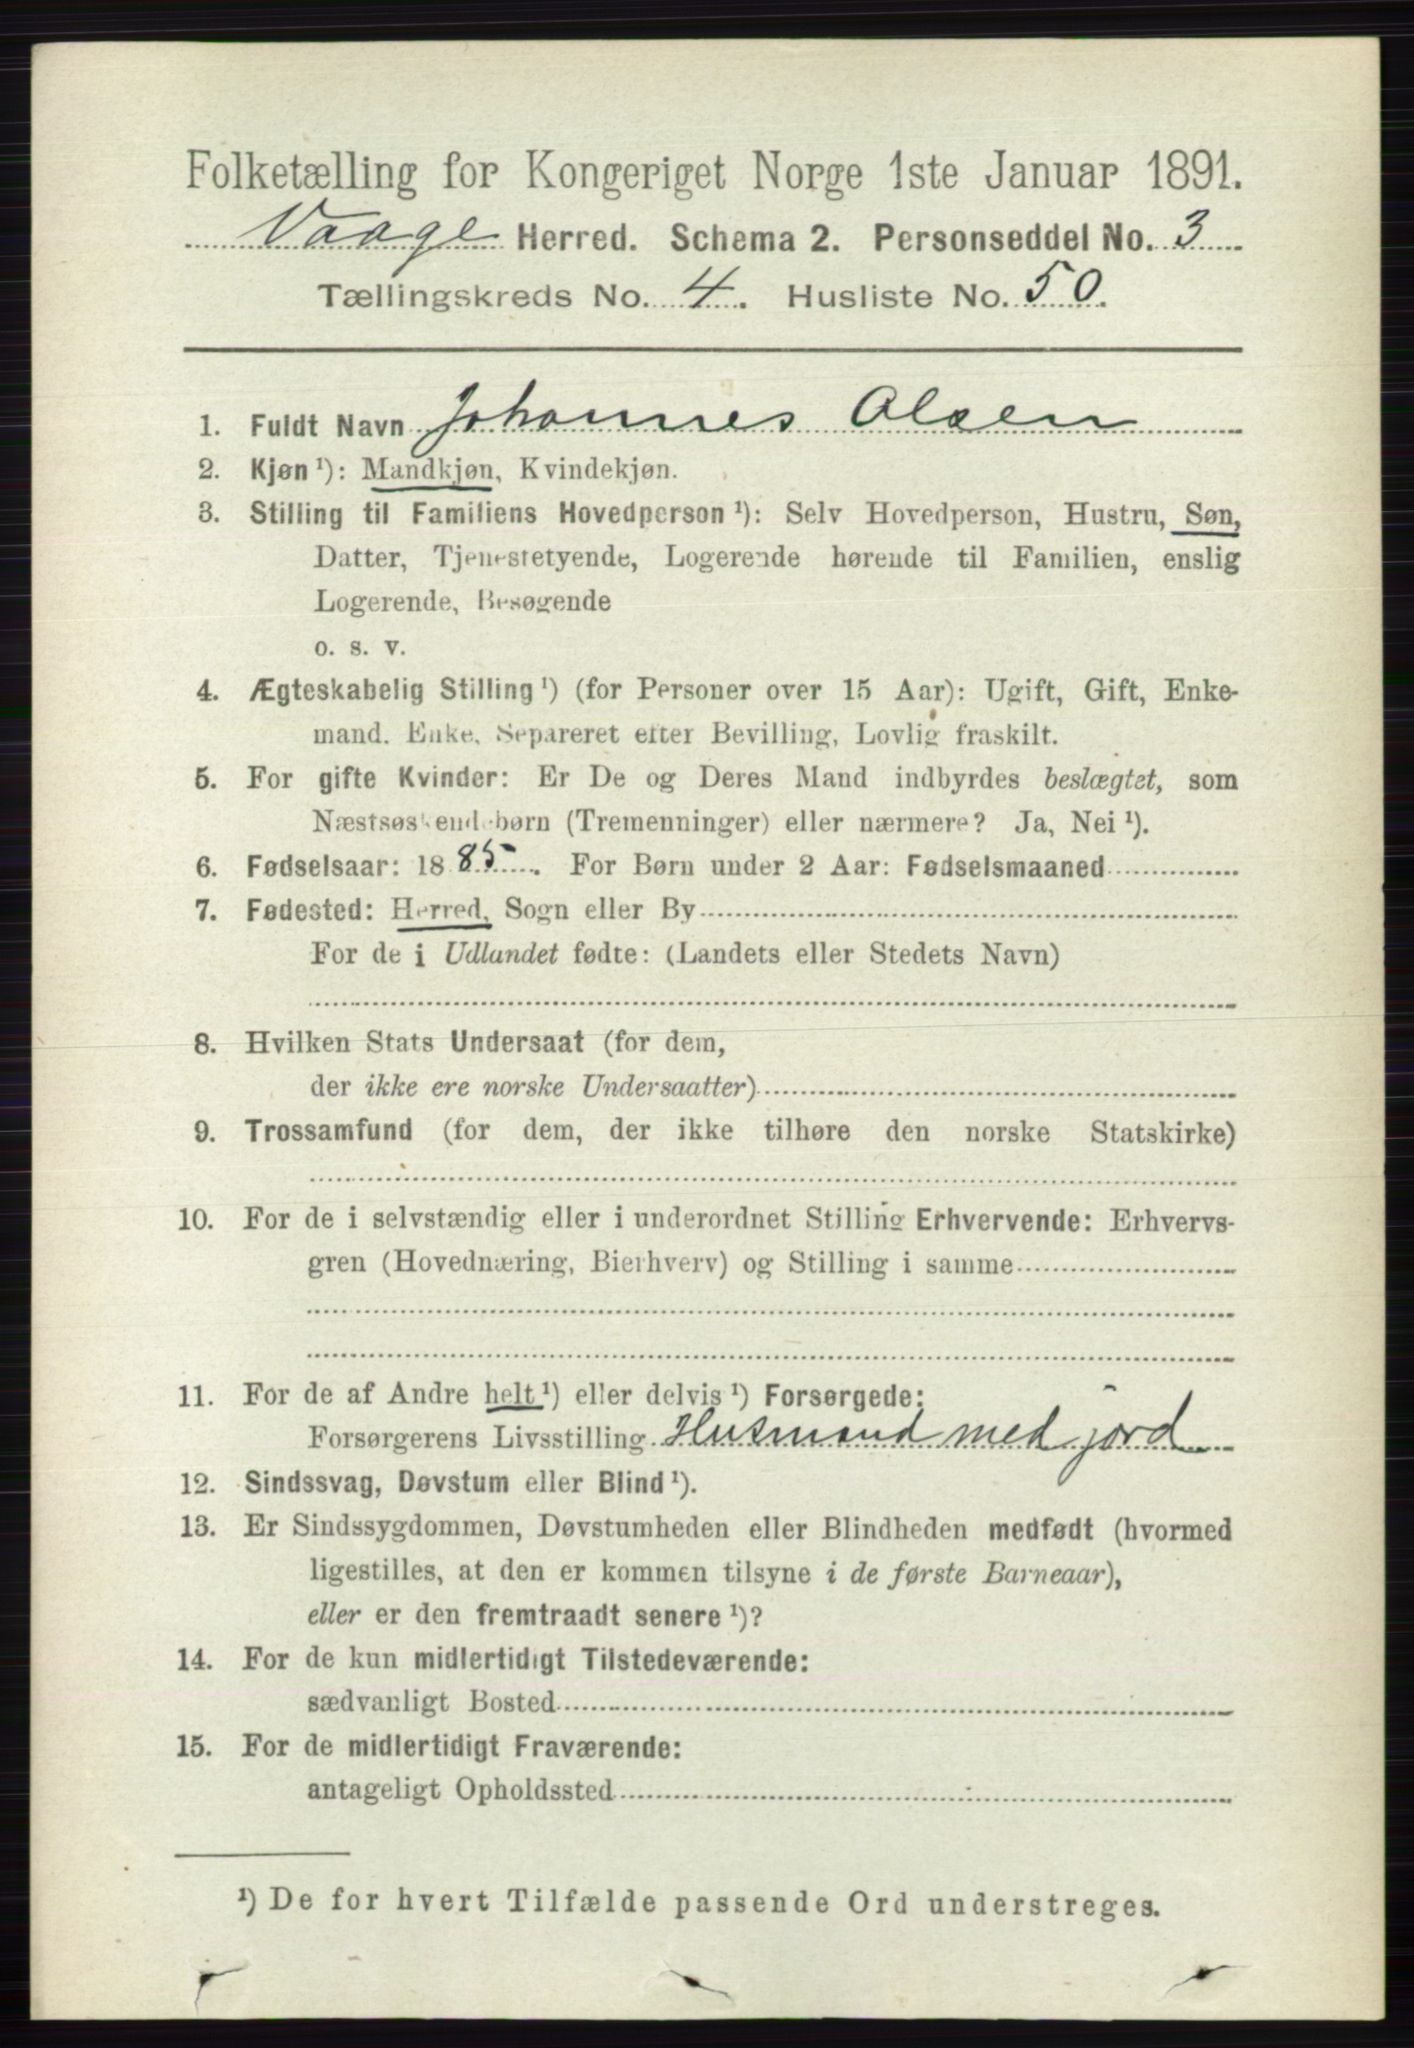 Folketælling for Kongeriget Norge 1ste Januar 1891.
Vaage Herred. Schema 2. Personseddel No. 3
Tællingskreds No. 4. Husliste No. 50.
1. Fuldt Navn Johannes Olsen
2. Kjøn ¹): Mandkjøn, Kvindekjøn.
3. Stilling til Familiens Hovedperson ¹): Selv Hovedperson, Hustru, Søn,
Datter, Tjenestetyende, Logerende hørende til Familien, enslig
Logerende, Besøgende
o. s. v.
4. Ægteskabelig Stilling ¹) (for Personer over 15 Aar): Ugift, Gift, Enke-
mand, Enke, Separeret efter Bevilling, Lovlig fraskilt.
5. For gifte Kvinder: Er De og Deres Mand indbyrdes beslægtet, som
Næstsøskendebørn (Tremenninger) eller nærmere? Ja, Nei ¹).
6. Fødselsaar: 1885. For Børn under 2 Aar: Fødselsmaaned
7. Fødested: Herred, Sogn eller By
For de i Udlandet fødte: (Landets eller Stedets Navn)
8. Hvilken Stats Undersaat (for dem,
der ikke ere norske Undersaatter)
9. Trossamfund (for dem, der ikke tilhøre den norske Statskirke)
10. For de i selvstændig eller i underordnet Stilling Erhvervende: Erhvervs-
gren (Hovednæring, Bierhverv) og Stilling i samme
11. For de af Andre helt ¹) eller delvis ¹) Forsørgede:
Forsørgerens Livsstilling Husmand med jord
12. Sindssvag, Døvstum eller Blind ¹).
13. Er Sindssygdommen, Døvstumheden eller Blindheden medfødt (hvormed
ligestilles, at den er kommen tilsyne i de første Barneaar),
eller er den fremtraadt senere ¹)?
14. For de kun midlertidigt Tilstedeværende:
sædvanligt Bosted
15. For de midlertidigt Fraværende:
antageligt Opholdssted
¹) De for hvert Tilfælde passende Ord understreges.